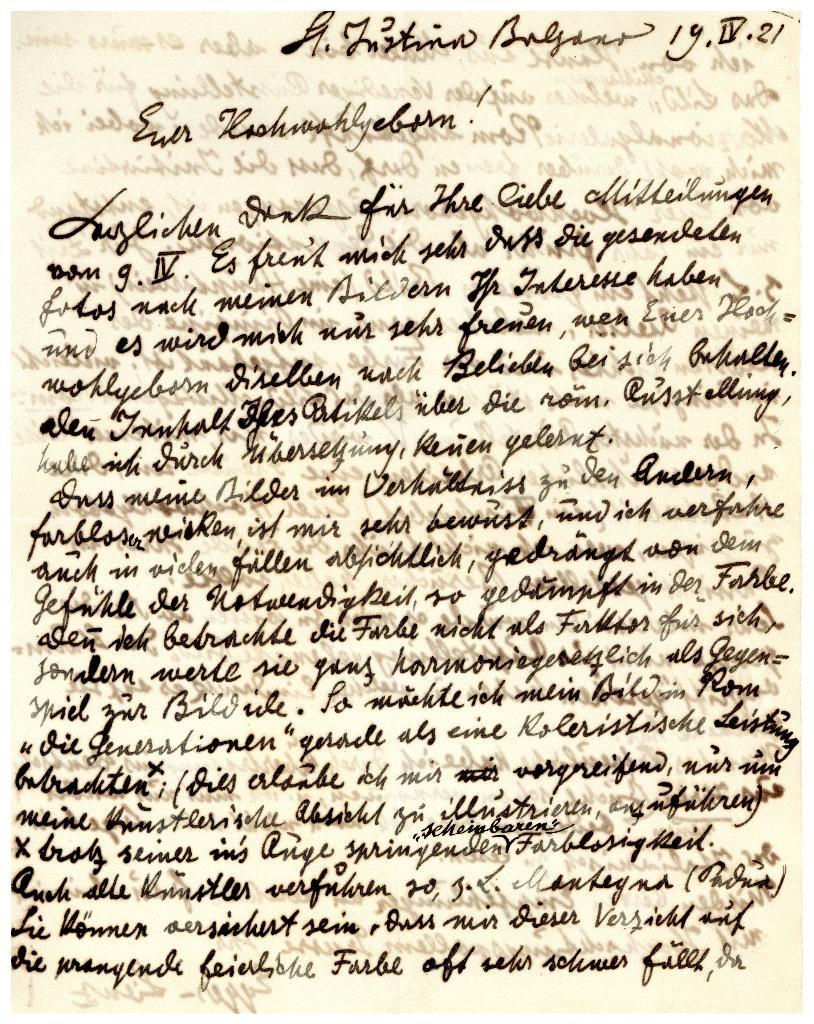 St. Justina Bolzano 19.IV.21
Euer Hochwohlgeborn!
Herzlichen Dank für Ihre liebe Mitteilungen
vom 9. IV. Es freut mich sehr dass die gesendeten
fotos nach meinen Bildern Ihr Interesse haben
und es wird mich nur sehr freuen, wen Euer Hoch=
wohlgeborn diselben nach Belieben bei sich behalten.
den Innhalt Ihres Artikels über die röm. Ausstellung,
habe ich durch Übersetzung, kenen gelernt.
dass meine Bilder im Verhältniss zu den Andern,
farbloser wirken, ist mir sehr bewust, und ich verfahre
auch in vielen fällen absichtlich, gedrängt von dem
Gefühle der Notwendigkeit, so gedämpft in der Farbe.
den ich betrachte die Farbe nicht als Faktor für sich,
sondern werte sie ganz harmoniegesetzlich als Gegen=
spiel zur Bildide. So möchte ich mein Bild in Rom
„die Generationen" gerade als eine koleristische Leistung
betrachten x; (dies erlaube ich mir mir vorgreifend, nur um
meine künstlerische Absicht zu illustrieren, anzuführen)
x trotz seiner in's Auge springenden „scheinbaren" Farblosigkeit.
Auch alte Künstler verfuhren so, z. B. Mantegna (Padua)
Sie können versichert sein, dass mir dieser Verzicht auf
die prangende feierliche Farbe oft sehr schwer fällt, da